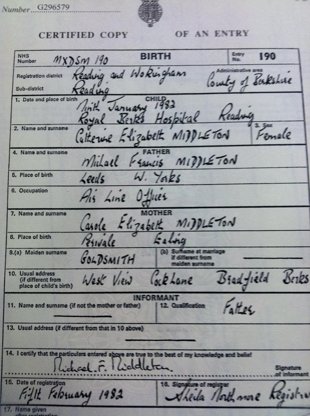 Number G296579
CERTIFIED COPY OF AN ENTRY
NHS Number MXDSM 190 BIRTH Entry No. 190
Registration district Reading and Wokingham Administrative area
Sub-district Reading County of Berkshire
1. Date and place of birth CHILD
Ninth January 1982
Royal Berks Hospital Reading
2. Name and surname 3. Sex
Catherine Elizabeth MIDDLETON Female
4. Name and surname FATHER
Michael Francis MIDDLETON
5. Place of birth
Leeds W. Yorks
6. Occupation
Air Line Officer
7. Name and surname MOTHER
Carole Elizabeth MIDDLETON
8. Place of birth
Perivale Ealing
9.(a) Maiden surname (b) Surname at marriage if different from maiden surname
GOLDSMITH
10. Usual address (if different from place of child's birth)
West View Cock Lane Bradfield Berks
INFORMANT
11. Name and surname (if not the mother or father) 12. Qualification
Father
13. Usual address (if different from that in 10 above)
14. I certify that the particulars entered above are true to the best of my knowledge and belief
Michael F. Middleton Signature of informant
15. Date of registration 16. Signature of registrar
Fifth February 1982 Registrar
17. Name given